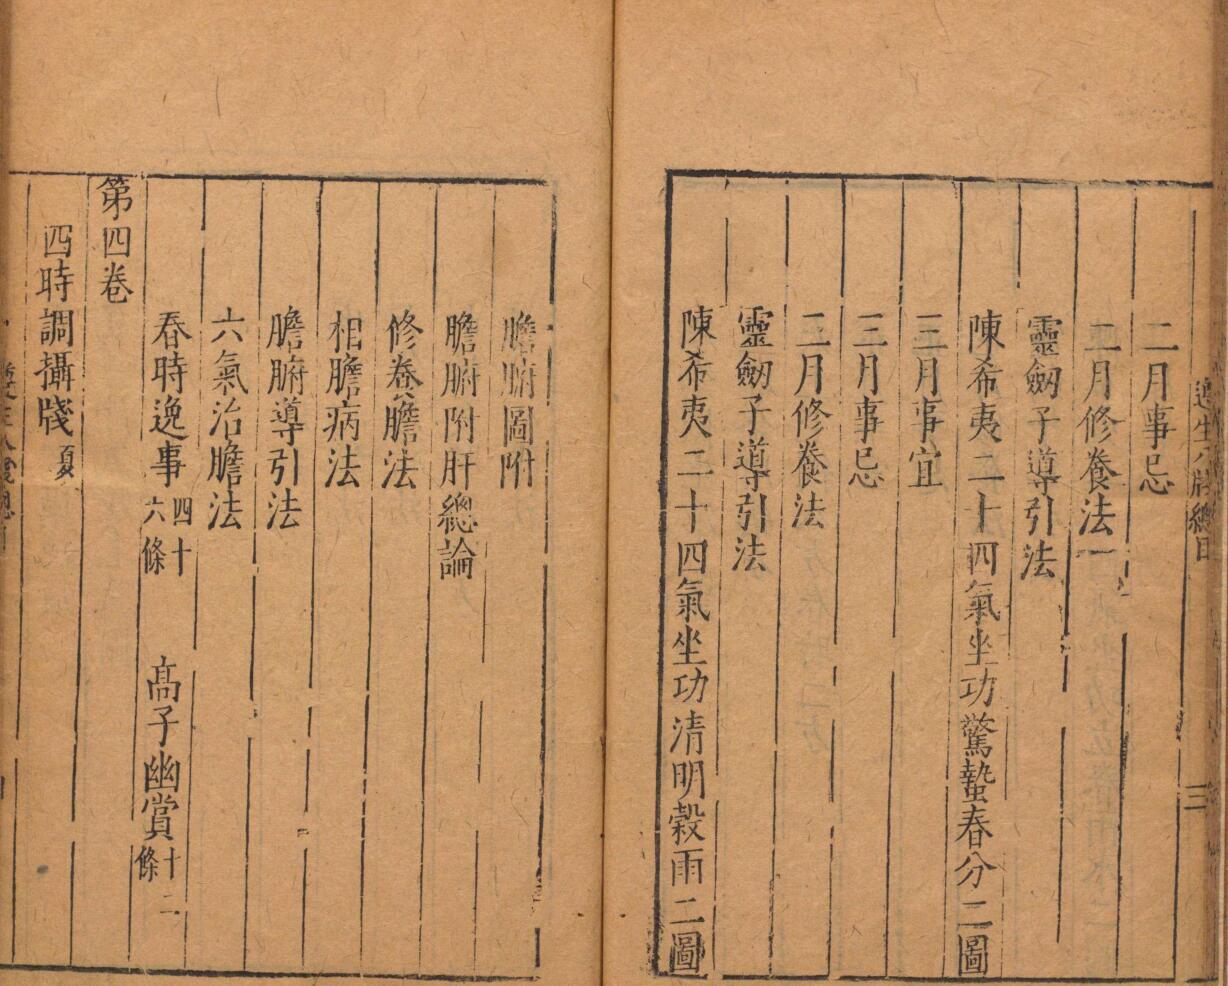 遵生八牋總目
三
二月事忌
二月修養法
靈劒子導引法
陳希夷二十四氣坐功驚蟄春分二圖
三月事宜
三月事忌
三月修養法
靈劒子導引法
陳希夷二十四氣坐功清明穀雨二圖
膽腑圖附
膽腑附肝總論
修養膽法
相膽病法
膽腑導引法
六氣治膽法
春時逸事四十六條 高子幽賞十二條
第四卷
四時調攝牋夏